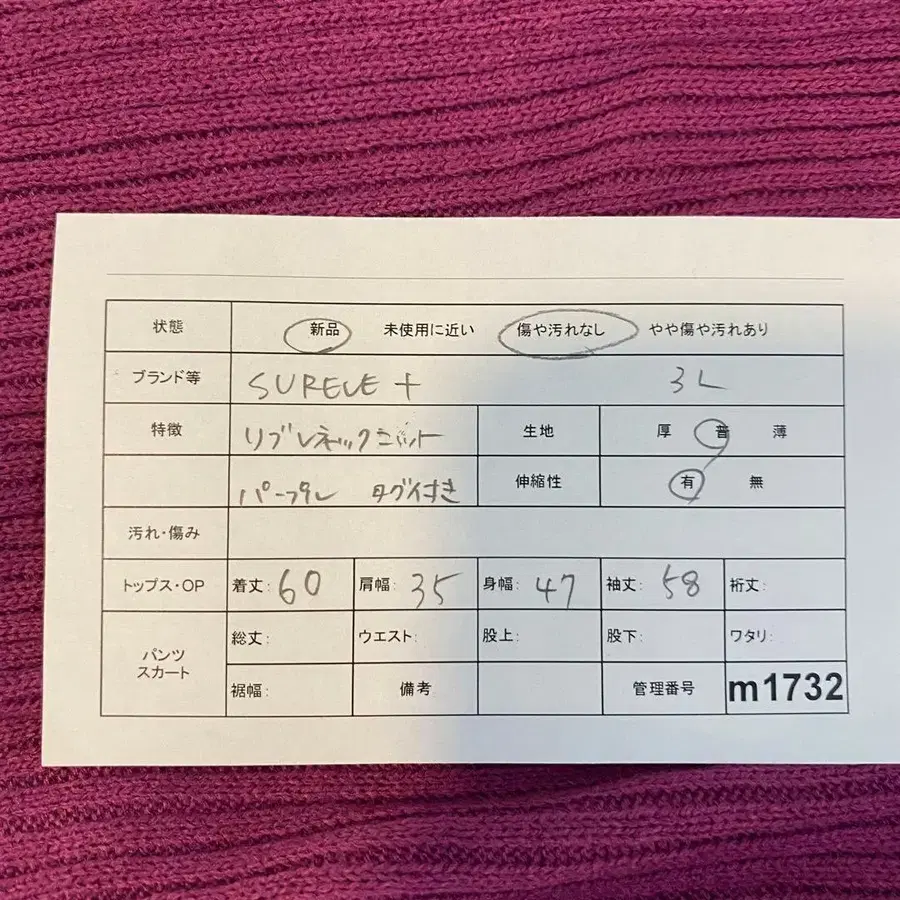 状態 新品 未使用に近い 傷や汚れなし やや傷や汚れあり
ブランド等 SUREVE + 3L
特徴 リブVネックニット 生地 厚 普 薄
パープル タグ付き 伸縮性 有 無
汚れ・傷み
トップス・OP 着丈: 60 肩幅: 35 身幅: 47 袖丈: 58 裄丈:
パンツ スカート 総丈: ウエスト: 股上: 股下: ワタリ:
裾幅: 備考 管理番号 m1732